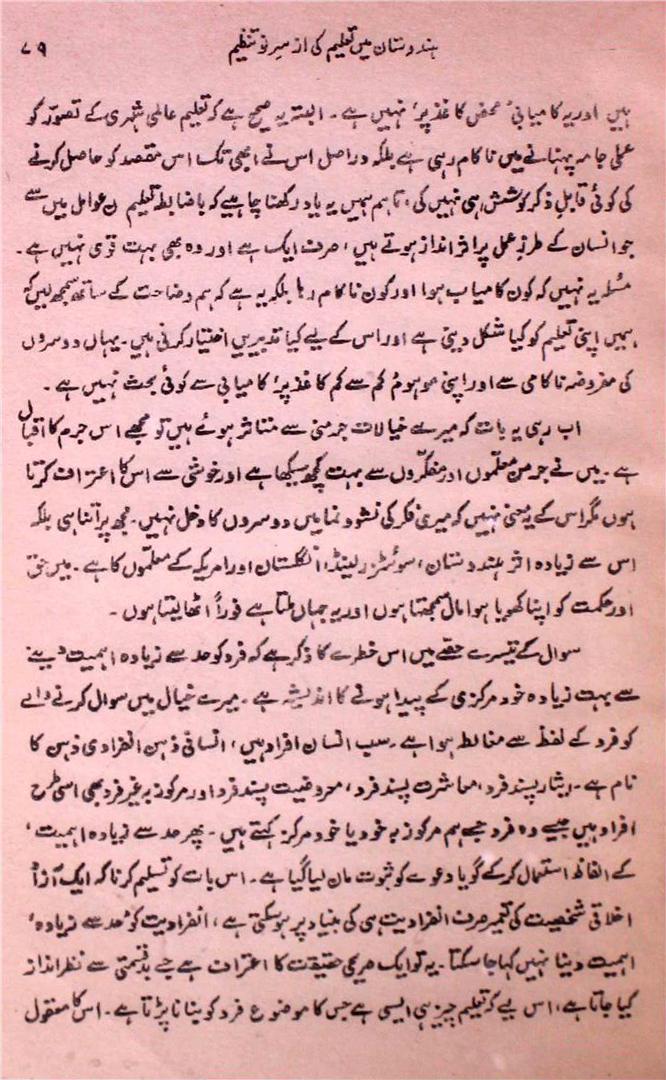 ہندوستان میں تعلیم کی از سرِ نو تنظیم
۷۹
ہیں اور یہ کامیابی 'محض کاغذ پر' نہیں ہے۔ البتہ یہ صحیح ہے کہ تعلیم عالمی شہری کے تصوّر کو
عملی جامہ پہنانے میں ناکام رہی ہے بلکہ دراصل اس نے ابھی تک اس مقصد کو حاصل کرنے
کی کوئی قابلِ ذکر کوشش ہی نہیں کی، تاہم ہمیں یہ یاد رکھنا چاہیے کہ باضابطہ تعلیم ن عوامل میں سے
جو انسان کے طرزِ عمل پر اثر انداز ہوتے ہیں، صرف ایک ہے اور وہ بھی بہت قوی نہیں ہے۔
مسئلہ یہ نہیں کہ کون کامیاب ہوا اور کون ناکام رہا بلکہ یہ ہے کہ ہم وضاحت کے ساتھ سمجھ لیں کہ
ہمیں اپنی تعلیم کو کیا شکل دینی ہے اور اس کے لیے کیا تدبیریں اختیار کرنی ہیں۔ یہاں دوسروں
کی مفروضہ ناکامی سے اور اپنی موہوم 'کم سے کم کاغذ پر' کامیابی سے کوئی بحث نہیں ہے۔
اب رہی یہ بات کہ میرے خیالات جرمنی سے متاثر ہوئے ہیں تو مجھے اس جرم کا اقبال
ہے۔ میں نے جرمن معلّموں اور مفکّروں سے بہت کچھ سیکھا ہے اور خوشی سے اس کا اعتراف کرتا
ہوں مگر اس کے یہ معنی نہیں کہ میری فکر کی نشو و نما میں دوسروں کا دخل نہیں۔ مجھ پر اتنا ہی بلکہ
اس سے زیادہ اثر ہندوستان، سوئٹزرلینڈ، انگلستان اور امریکہ کے معلّموں کا ہے۔ میں حق
اور حکمت کو اپنا کھویا ہوا مال سمجھتا ہوں اور یہ جہاں ملتا ہے فوراً اٹھا لیتا ہوں۔
سوال کے تیسرے حصّے میں اس خطرے کا ذکر ہے کہ فرد کو حد سے زیادہ اہمیت دینے
سے بہت زیادہ خود مرکزی کے پیدا ہونے کا اندیشہ ہے۔ میرے خیال میں سوال کرنے والے
کو فرد کے لفظ سے مغالطہ ہوا ہے۔ سب انسان افراد ہیں، انسانی ذہن انفرادی ذہن کا
نام ہے۔ ایثار پسند فرد، معاشرت پسند فرد، معروضیت پسند فرد اور مرکوز بہ غیر فرد بھی اسی طرح
افراد ہیں جیسے وہ فرد جسے ہم مرکوز بہ خود یا خود مرکز کہتے ہیں۔ پھر 'حد سے زیادہ اہمیت'
کے الفاظ استعمال کر کے گویا دعوے کو ثبوت مان لیا گیا ہے۔ اس بات کو تسلیم کرنا کہ ایک آزاد
اخلاقی شخصیت کی تعمیر صرف انفرادیت ہی کی بنیاد پر ہو سکتی ہے، انفرادیت کو 'حد سے زیادہ'
اہمیت دینا نہیں کہا جا سکتا۔ یہ تو ایک صریحی حقیقت کا اعتراف ہے جسے بدقسمتی سے نظر انداز
کیا جاتا ہے، اس لیے کہ تعلیم چیز ہی ایسی ہے جس کا موضوع فرد کو بنانا پڑتا ہے۔ اس کا معقول